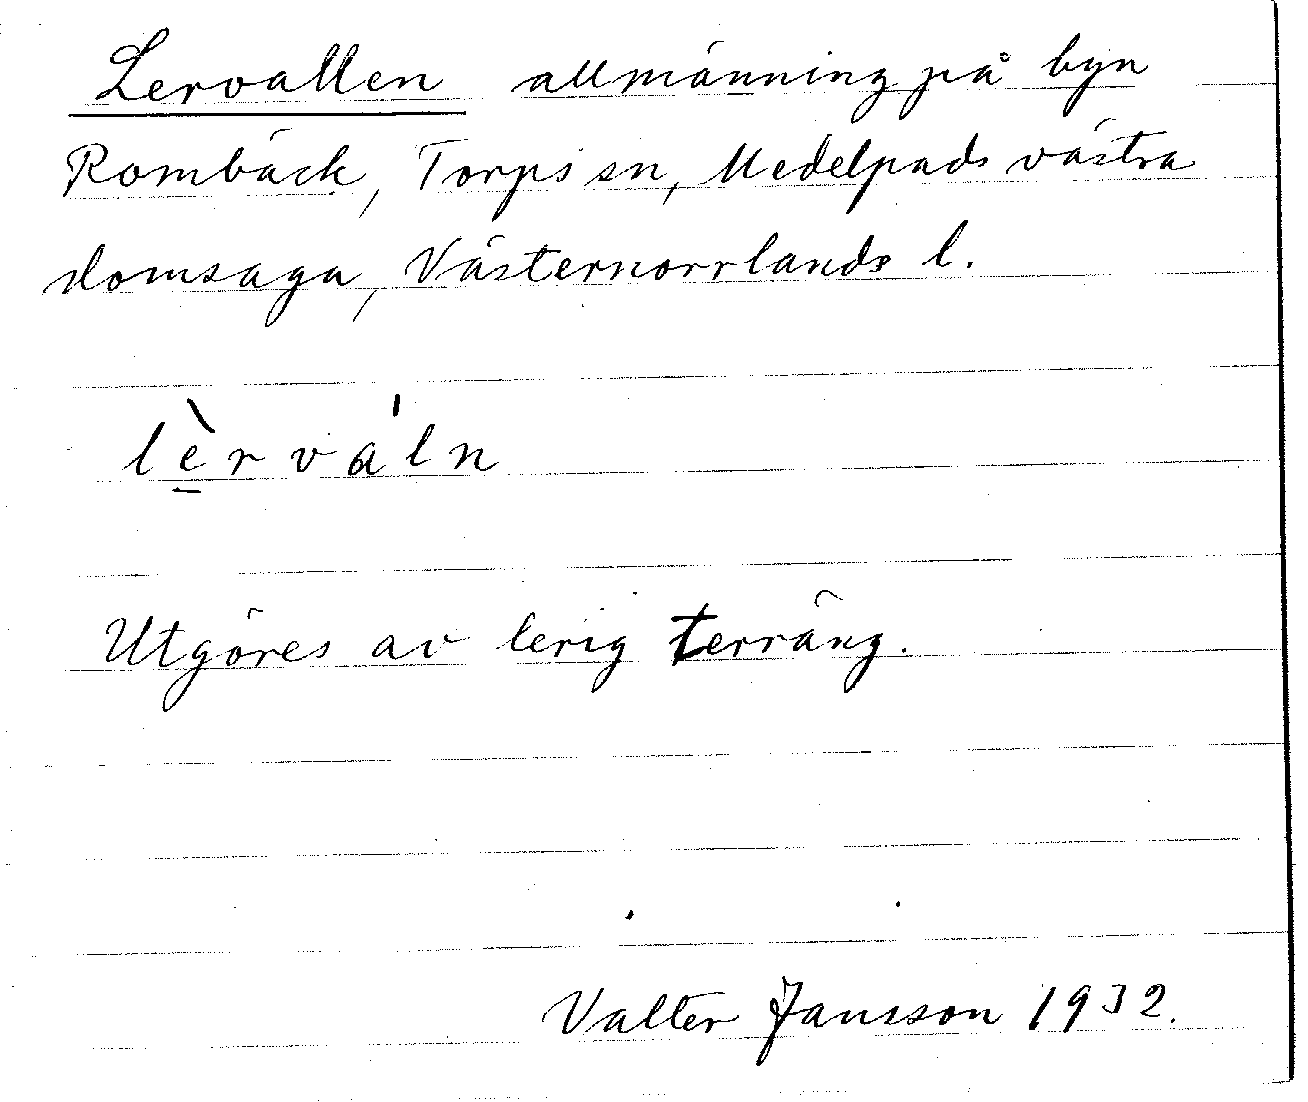 Lervallen allmänning på byn
Rombäck, Torps sn, Medelpads västra
domsaga, Västernorrlands l.
lè̱rváln
Utgöres av lerig terräng.
Valter Jansson 1932.